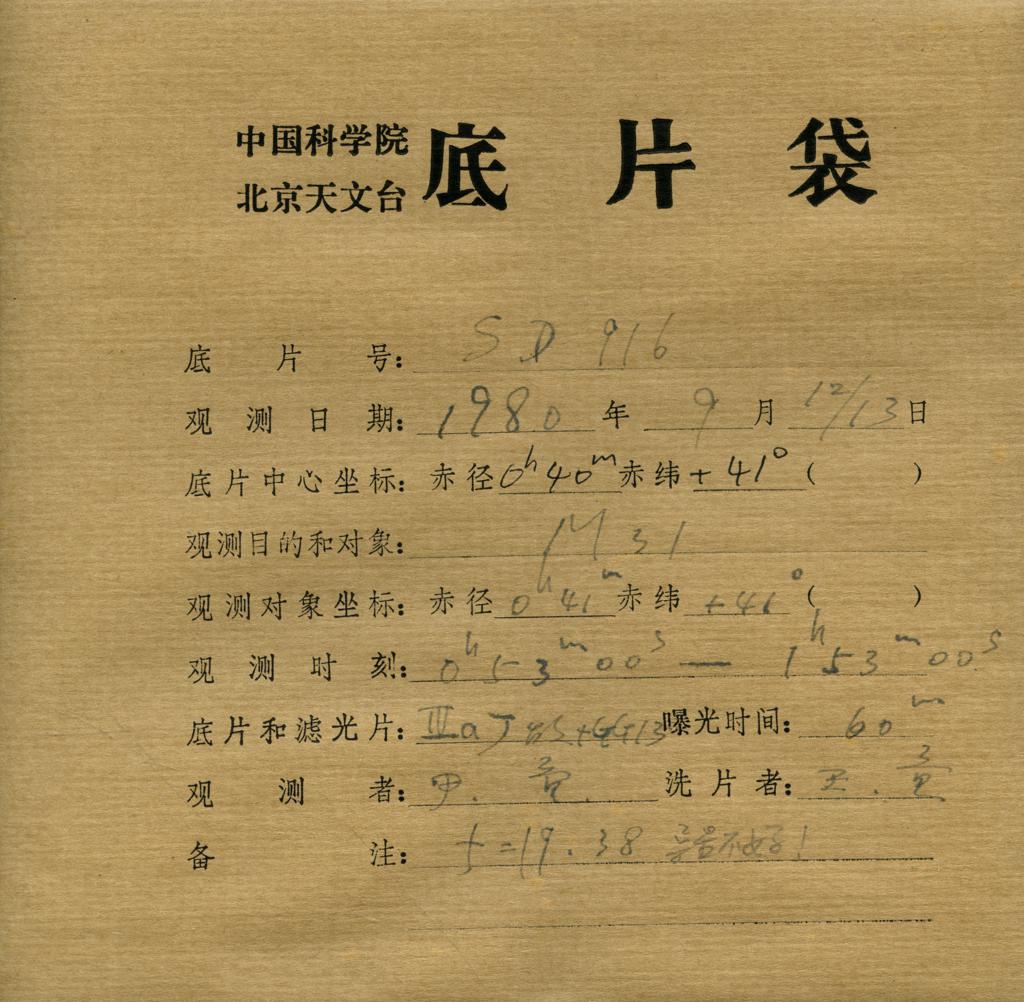 中国科学院
北京天文台
底片袋
底片号: SD 916
观测日期: 1980年 9月 12/13日
底片中心坐标: 赤径 0h40m 赤纬 +41° ( )
观测目的和对象: M31
观测对象坐标: 赤径 0h41m 赤纬 +41° ( )
观测时刻: 0h53m00s — 1h53m00s
底片和滤光片: IIIaJ +GG13 曝光时间: 60m
观测者: 洗片者: 王.
备注: t=19.38 导星不好!